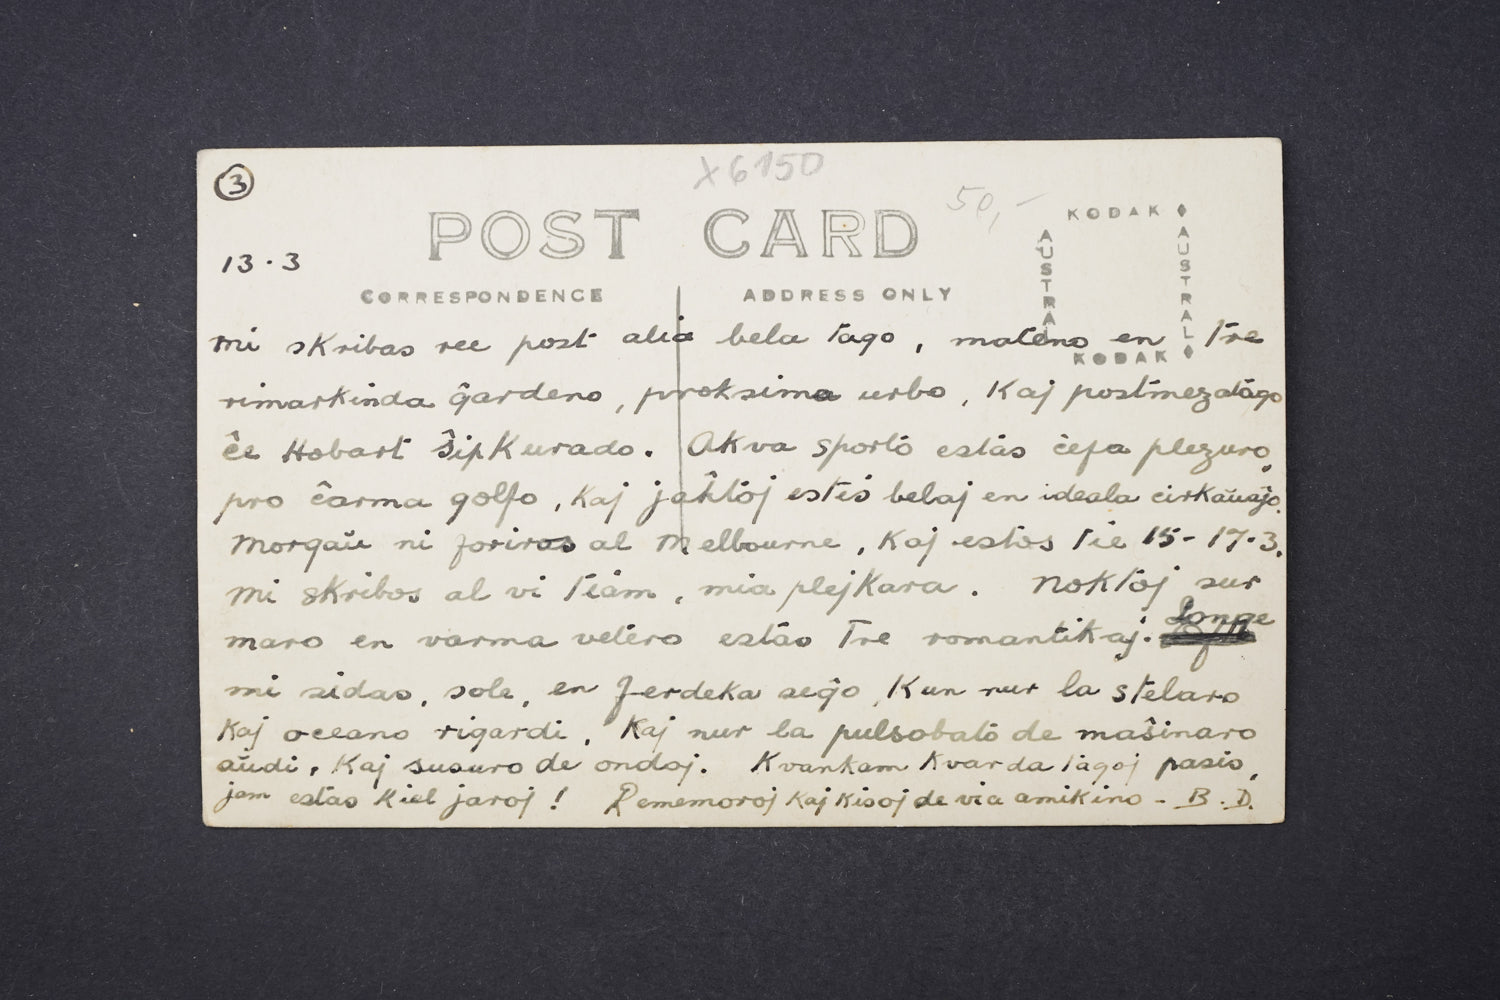 3
X6150
50,-
POST CARD
KODAK
AUSTRAL
AUSTRAL
KODAK
13.3
CORRESPONDENCE
ADDRESS ONLY
Mi skribas ree post alia bela tago, mateno en tre
rimarkinda ĝardeno, proksima urbo, Kaj postmezatago
ĉe Hobart ŝipKurado. Akva sporto estas ĉefa plezuro,
pro ĉarma golfo, Kaj jaĥtoj estis belaj en ideala cirKaŭaĵo.
Morgaŭ ni foriros al Melbourne, Kaj estos tie 15-17.3.
Mi skribos al vi tiam, mia plejKara. Noktoj sur
maro en varma vetero estas tre romantikaj. Longe
mi sidas, sole, en ferdeka seĝo, Kun nur la stelaro
Kaj oceano rigardi, Kaj nur la pulsobato de maŝinaro
aŭdi, Kaj susuro de ondoj. Kvankam Kvarda tagoj pasis,
jam estas Kiel jaroj! Rememoroj Kaj Kisoj de via amikino - B.D.